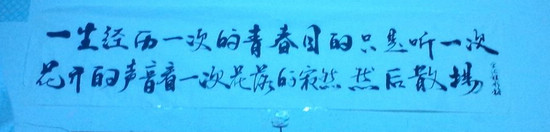 一生经历一次的青春目的只是听一次
花开的声音看一次花落的寂然然后散场